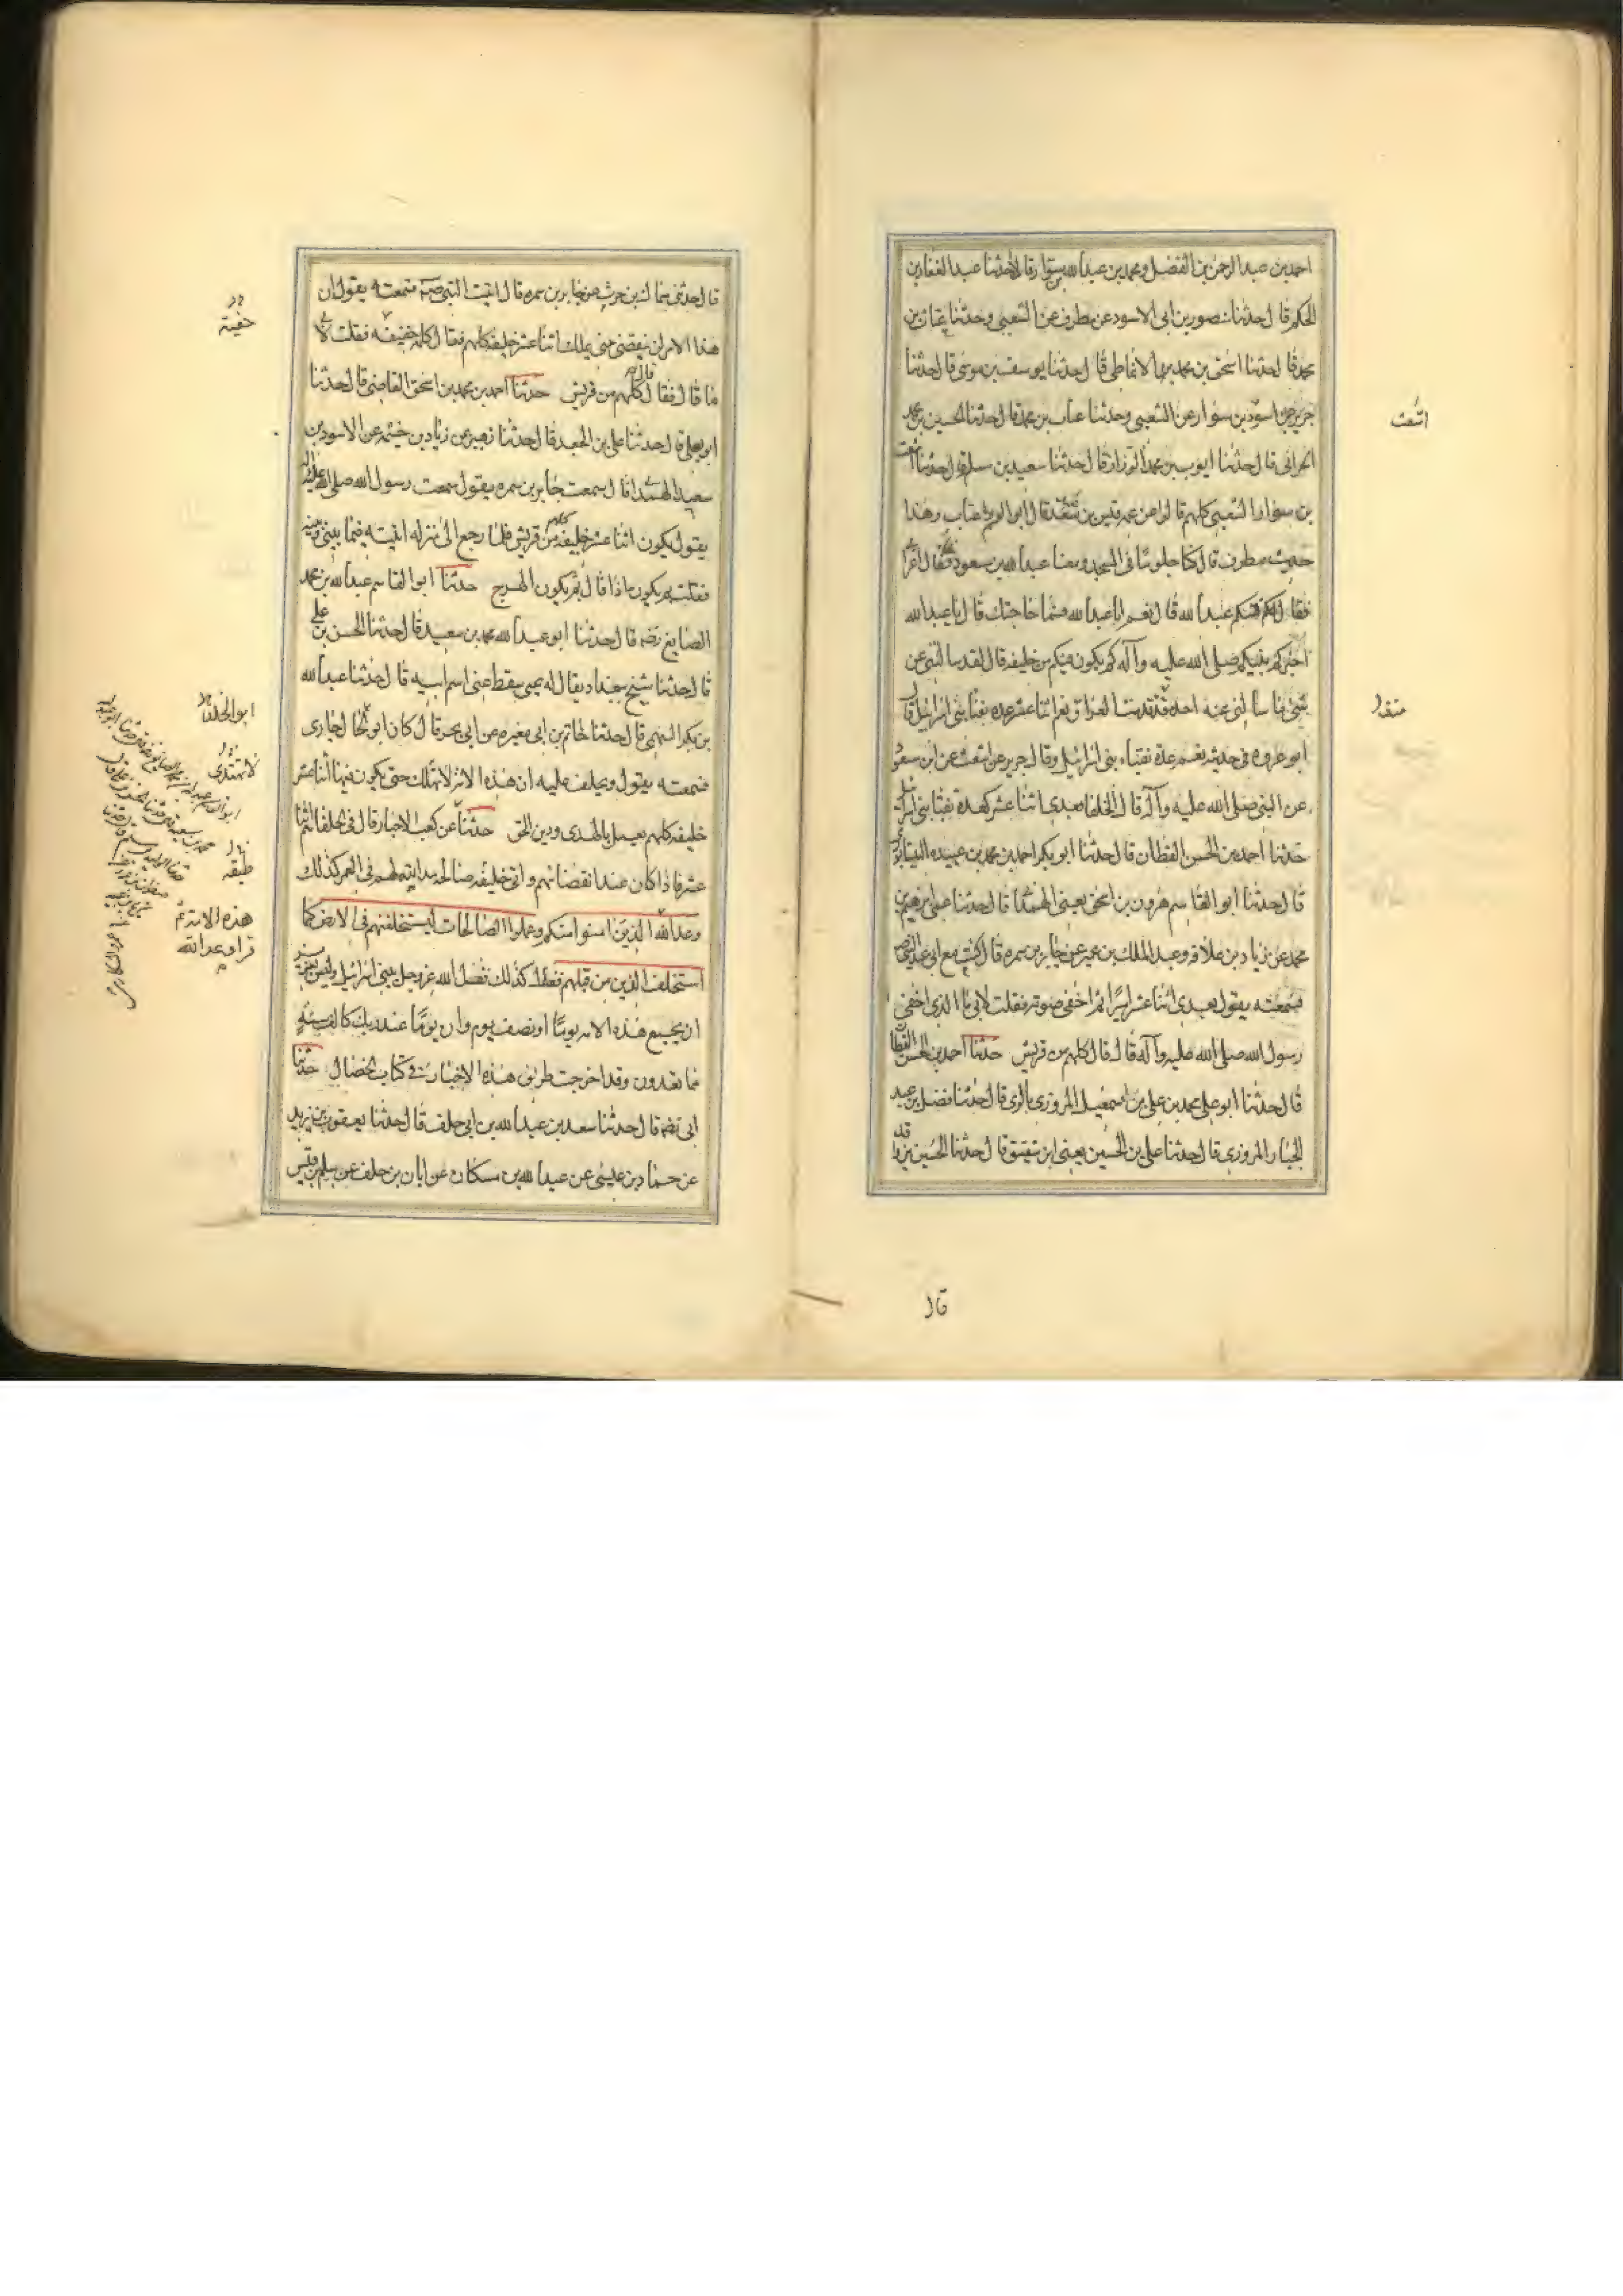 احمد بن عبد الرحمن بن الفضل ومحمد بن عبدالله بن سوار قالا حدثنا عبد الغفار بن
الحكم قال حدثنا منصور بن ابى الاسود عن مطرف عن الشعبى وحدثنا عتاب بن
محمد قال حدثنا اسحق بن محمد الانماطى قال حدثنا يوسف بن موسى قال حدثنا
جرير عن اسود بن سوار عن الشعبى وحدثنا عتاب بن محمد قال حدثنا الحسين بن محمد
الحرانى قال حدثنا ايوب بن محمد الوزان قال حدثنا سعيد بن سلمة قال حدثنا اشعث
بن سوار الشعبى كلهم قالوا عن عمه قيس بن قال ابو القاسم عتاب وهذا
حديث مطرف قال كنا جلوسا فى المسجد ومعنا عبدالله بن مسعود فقال
فقال عبدالله قال نعم انا عبدالله فما حاجتك قال يا عبدالله
اخبركم نبيكم صلى الله عليه وآله كم يكون فيكم من خليفه قال لقد سالتنى عن
شئ ما سالنى عنه احد قدمت العراق نعم اثنا عشر عدة نقبا بنى اسرائيل قال
ابو عروه فى حديثه نعم عدة نقباء بنى اسرائيل وقال جرير عن اشعث عن ابن مسعود
عن النبى صلى الله عليه وآله قال الخلفا بعدى اثنا عشر كعدة نقبا بنى اسرائيل
حدثنا احمد بن الحسن القطان قال حدثنا ابو بكر احمد بن محمد بن عبيده النيسابورى
قال حدثنا ابو القاسم هرون بن اسحق يعنى الهمدانى قال حدثنا عمى ابرهيم بن
محمد عن زياد بن علاقه وعبد الملك بن عمير عن جابر بن سمره قال كنت مع ابى عند النبى
فسمعته يقول بعدى اثنا عشر اميرا ثم اخفى صوته فقلت لابى ما الذى اخفى
رسول الله صلى الله عليه وآله قال قال كلهم من قريش حدثنا احمد بن الحسن القطان
قال حدثنا ابو على محمد بن على بن اسمعيل المروزى بالرى قال حدثنا فضل بن عبد
الجبار المروزى قال حدثنا على بن الحسين يعنى ابن شقيق قال حدثنا الحسين بن واقد
اشعث
قال
قال حدثنى سماك بن حرب عن جابر بن سمره قال اتيت النبى فسمعته يقول ان
هذا الامر لن ينقضى حتى يملك اثنا عشر خليفه كلهم فقال كلمة خفيفه فقلت لابى
ما قال فقال قال كلهم من قريش حدثنا احمد بن محمد بن اسحق القاضى قال حدثنا
ابو يعلى قال حدثنا على بن الجعد قال حدثنا زهير عن زياد بن خيثمه عن الاسود بن
سعيد الهمدانى قال سمعت جابر بن سمره يقول سمعت رسول الله صلى الله عليه وآله
يقول يكون اثنا عشر خليفه كلهم من قريش فلما رجع الى منزله اتيته فيما بينى وبينه
فقلت ثم يكون ماذا قال ثم يكون الهرج حدثنا ابو القاسم عبدالله بن محمد
الصايغ رضه قال حدثنا ابو عبدالله محمد بن سعيد قال حدثنا الحسن بن على
قال حدثنا شيخ ببغداد يقال له يحيى سقط عنى اسم ابيه قال حدثنا عبدالله
بن بكر السهمى قال حدثنا حاتم بن ابى مغيره عن ابى بحر قال كان ابو جارى
فسمعته يقول ويحلف عليه ان هذه الامة لا تهلك حتى يكون فيها اثنا عشر
خليفه كلهم يعمل بالهدى ودين الحق حدثنا عن كعب الاحبار قال فى الخلفا اثنا
عشر فاذا كان عند انقضائهم واتى خليفه صالحه مد الله لهم فى العمر كذلك
وعد الله الذين امنوا منكم وعملوا الصالحات ليستخلفنهم فى الارض كما
استخلف الذين من قبلهم كذلك فعل الله عز وجل ببنى اسرائيل وليس بعزيز
ان يجمع هذه الامه يوما او نصف يوم وان يوما عند ربك كالف سنة
مما تعدون وقد اخرجت طريق هذه الاخبار فى كتاب الخصال حدثنا
ابى رضه قال حدثنا سعد بن عبدالله بن ابى خلف قال حدثنا يعقوب بن يزيد
عن حماد بن عيسى عن عبدالله بن مسكان عن ابان بن خلف عن سليم بن قيس
خفية
ابو الخلد
طبقه
هذه الامة ثم
قرا وعد الله